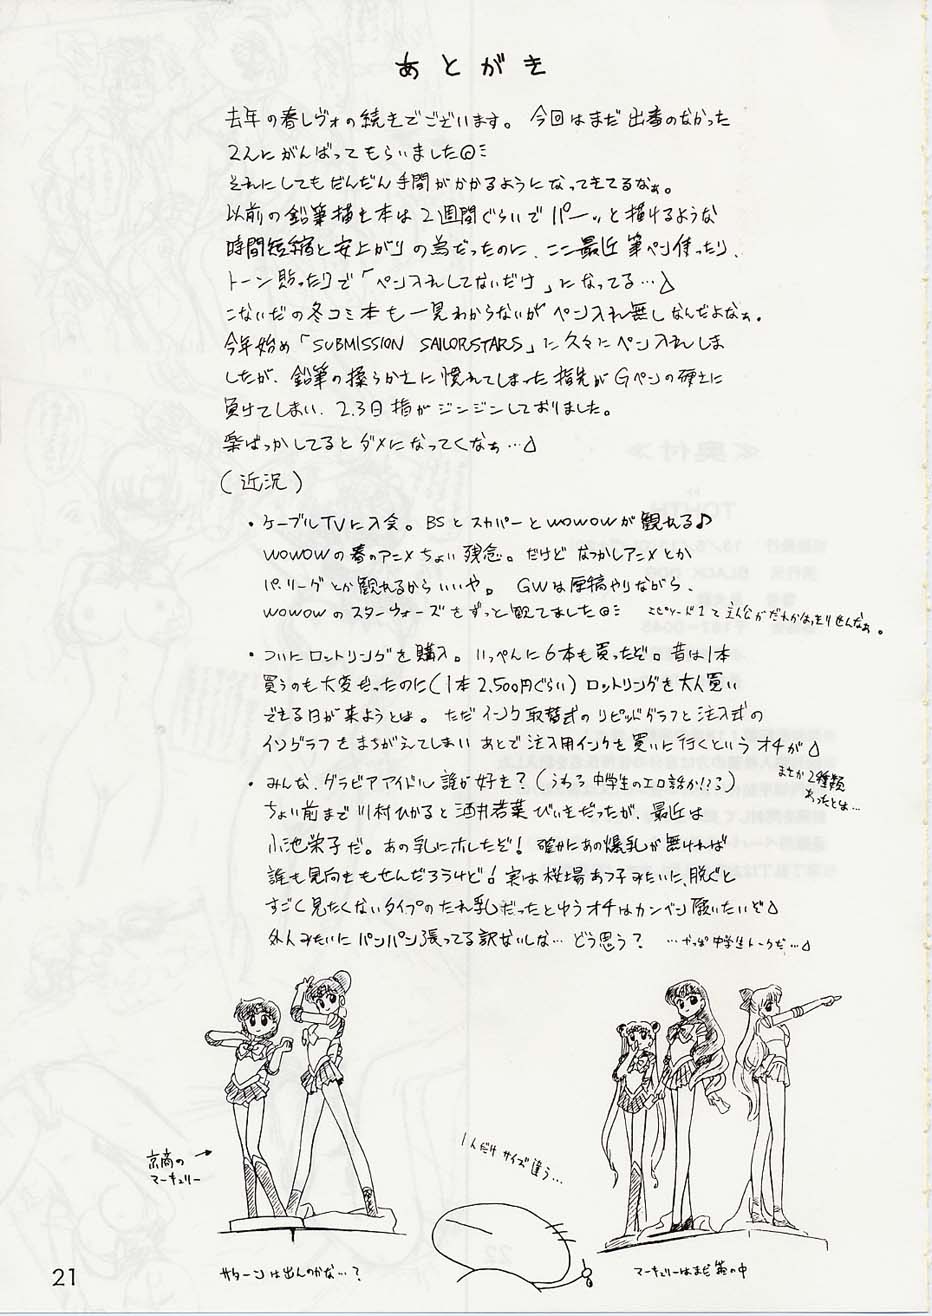 あとがき
去年の春レヴォの続きでございます。今回はまだ出番のなかった
2人にがんばってもらいました
それにしてもだんだん手間がかかるようになってきてるなぁ。
以前の鉛筆描き本は2週間ぐらいでパーッと描けるような
時間短縮と安上がりの為だったのに、ここ最近筆ペン使ったり、
トーン貼ったりで「ペン入れしてないだけ」になってる…
こないだの冬コミ本も一見わからないがペン入れ無しなんだよなぁ。
今年始め「SUBMISSION SAILORSTARS」に久々にペン入れしま
したが、鉛筆の柔らかさに慣れてしまった指先がGペンの硬さに
負けてしまい、2.3日指がジンジンしておりました。
楽ばっかしてるとダメになってくなぁ…
(近況)
・ケーブルTVに入会。BSとスカパーとWOWOWが観れる♪
WOWOWの春のアニメちょい残念。だけどなつかしアニメとか
パ・リーグとか観れるからいいや。GWは原稿やりながら、
WOWOWのスターウォーズをずっと観てました エピソード1て主人公がだれかはっきりせんなぁ。
・ついにロットリングを購入。いっぺんに6本も買ったぞ。昔は1本
買うのも大変だったのに(1本2,500円ぐらい)ロットリングを大人買い
できる日が来ようとは。ただインク取替式のラピッドグラフと注入式の
イソグラフをまちがえてしまいあとで注入用インクを買いに行くというオチが
まさか2種類
あったとは…
・みんな、グラビアアイドル誰が好き?(うわっ中学生のエロ話か!?)
ちょい前まで川村ひかると酒井若菜びいきだったが、最近は
小池栄子だ。あの乳にホレたぞ!確かにあの爆乳が無ければ
誰も見向きもせんだろうけど!実は桜場あつ子みたいに、脱ぐと
すごく見たくないタイプのたれ乳だったとゆうオチはカンベン願いたいぞ
外人みたいにパンパン張ってる訳ないしな…どう思う? …やっぱ中学生トークだ…
京商の
マーキュリー
1人だけサイズ違う…
サターンは出んのかな…?
マーキュリーはまだ箱の中
21